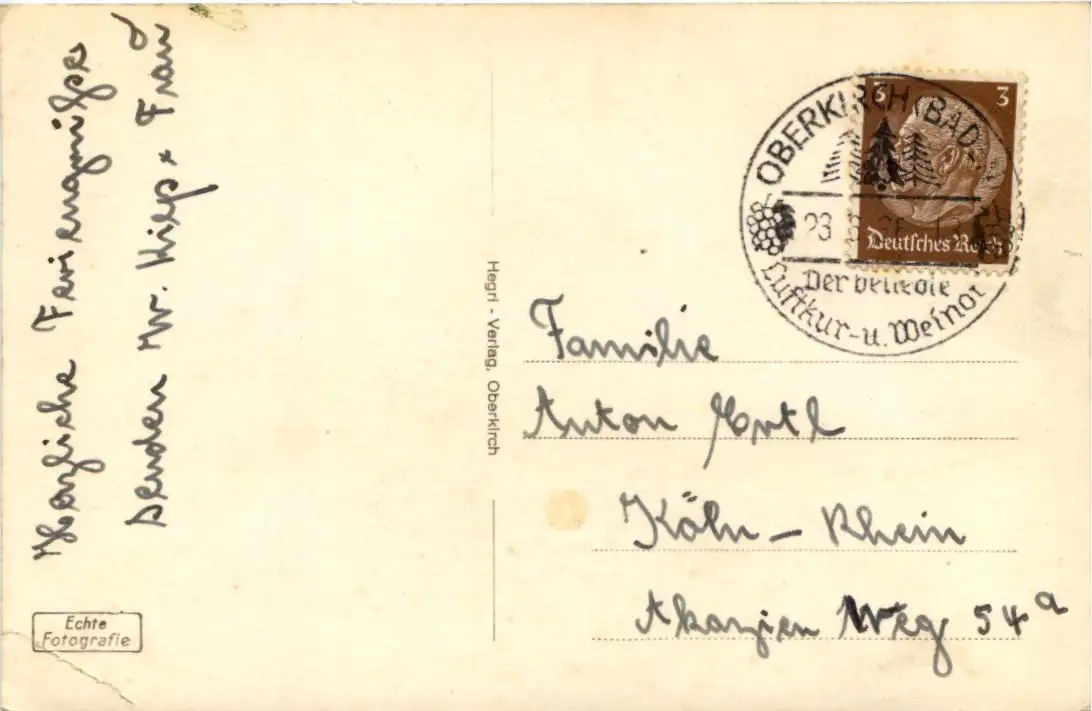 Herzliche Feriengrüße
senden Wr. Kieps & Frau
Echte
Fotografie
Hegri - Verlag, Oberkirch
OBERKIRCH (BADEN)
3 3
23
Deutsches Reich
Der beliebte
Luftkur- u. Weinort
Familie
Anton
Köln - Rhein
Akazien Weg 54 a